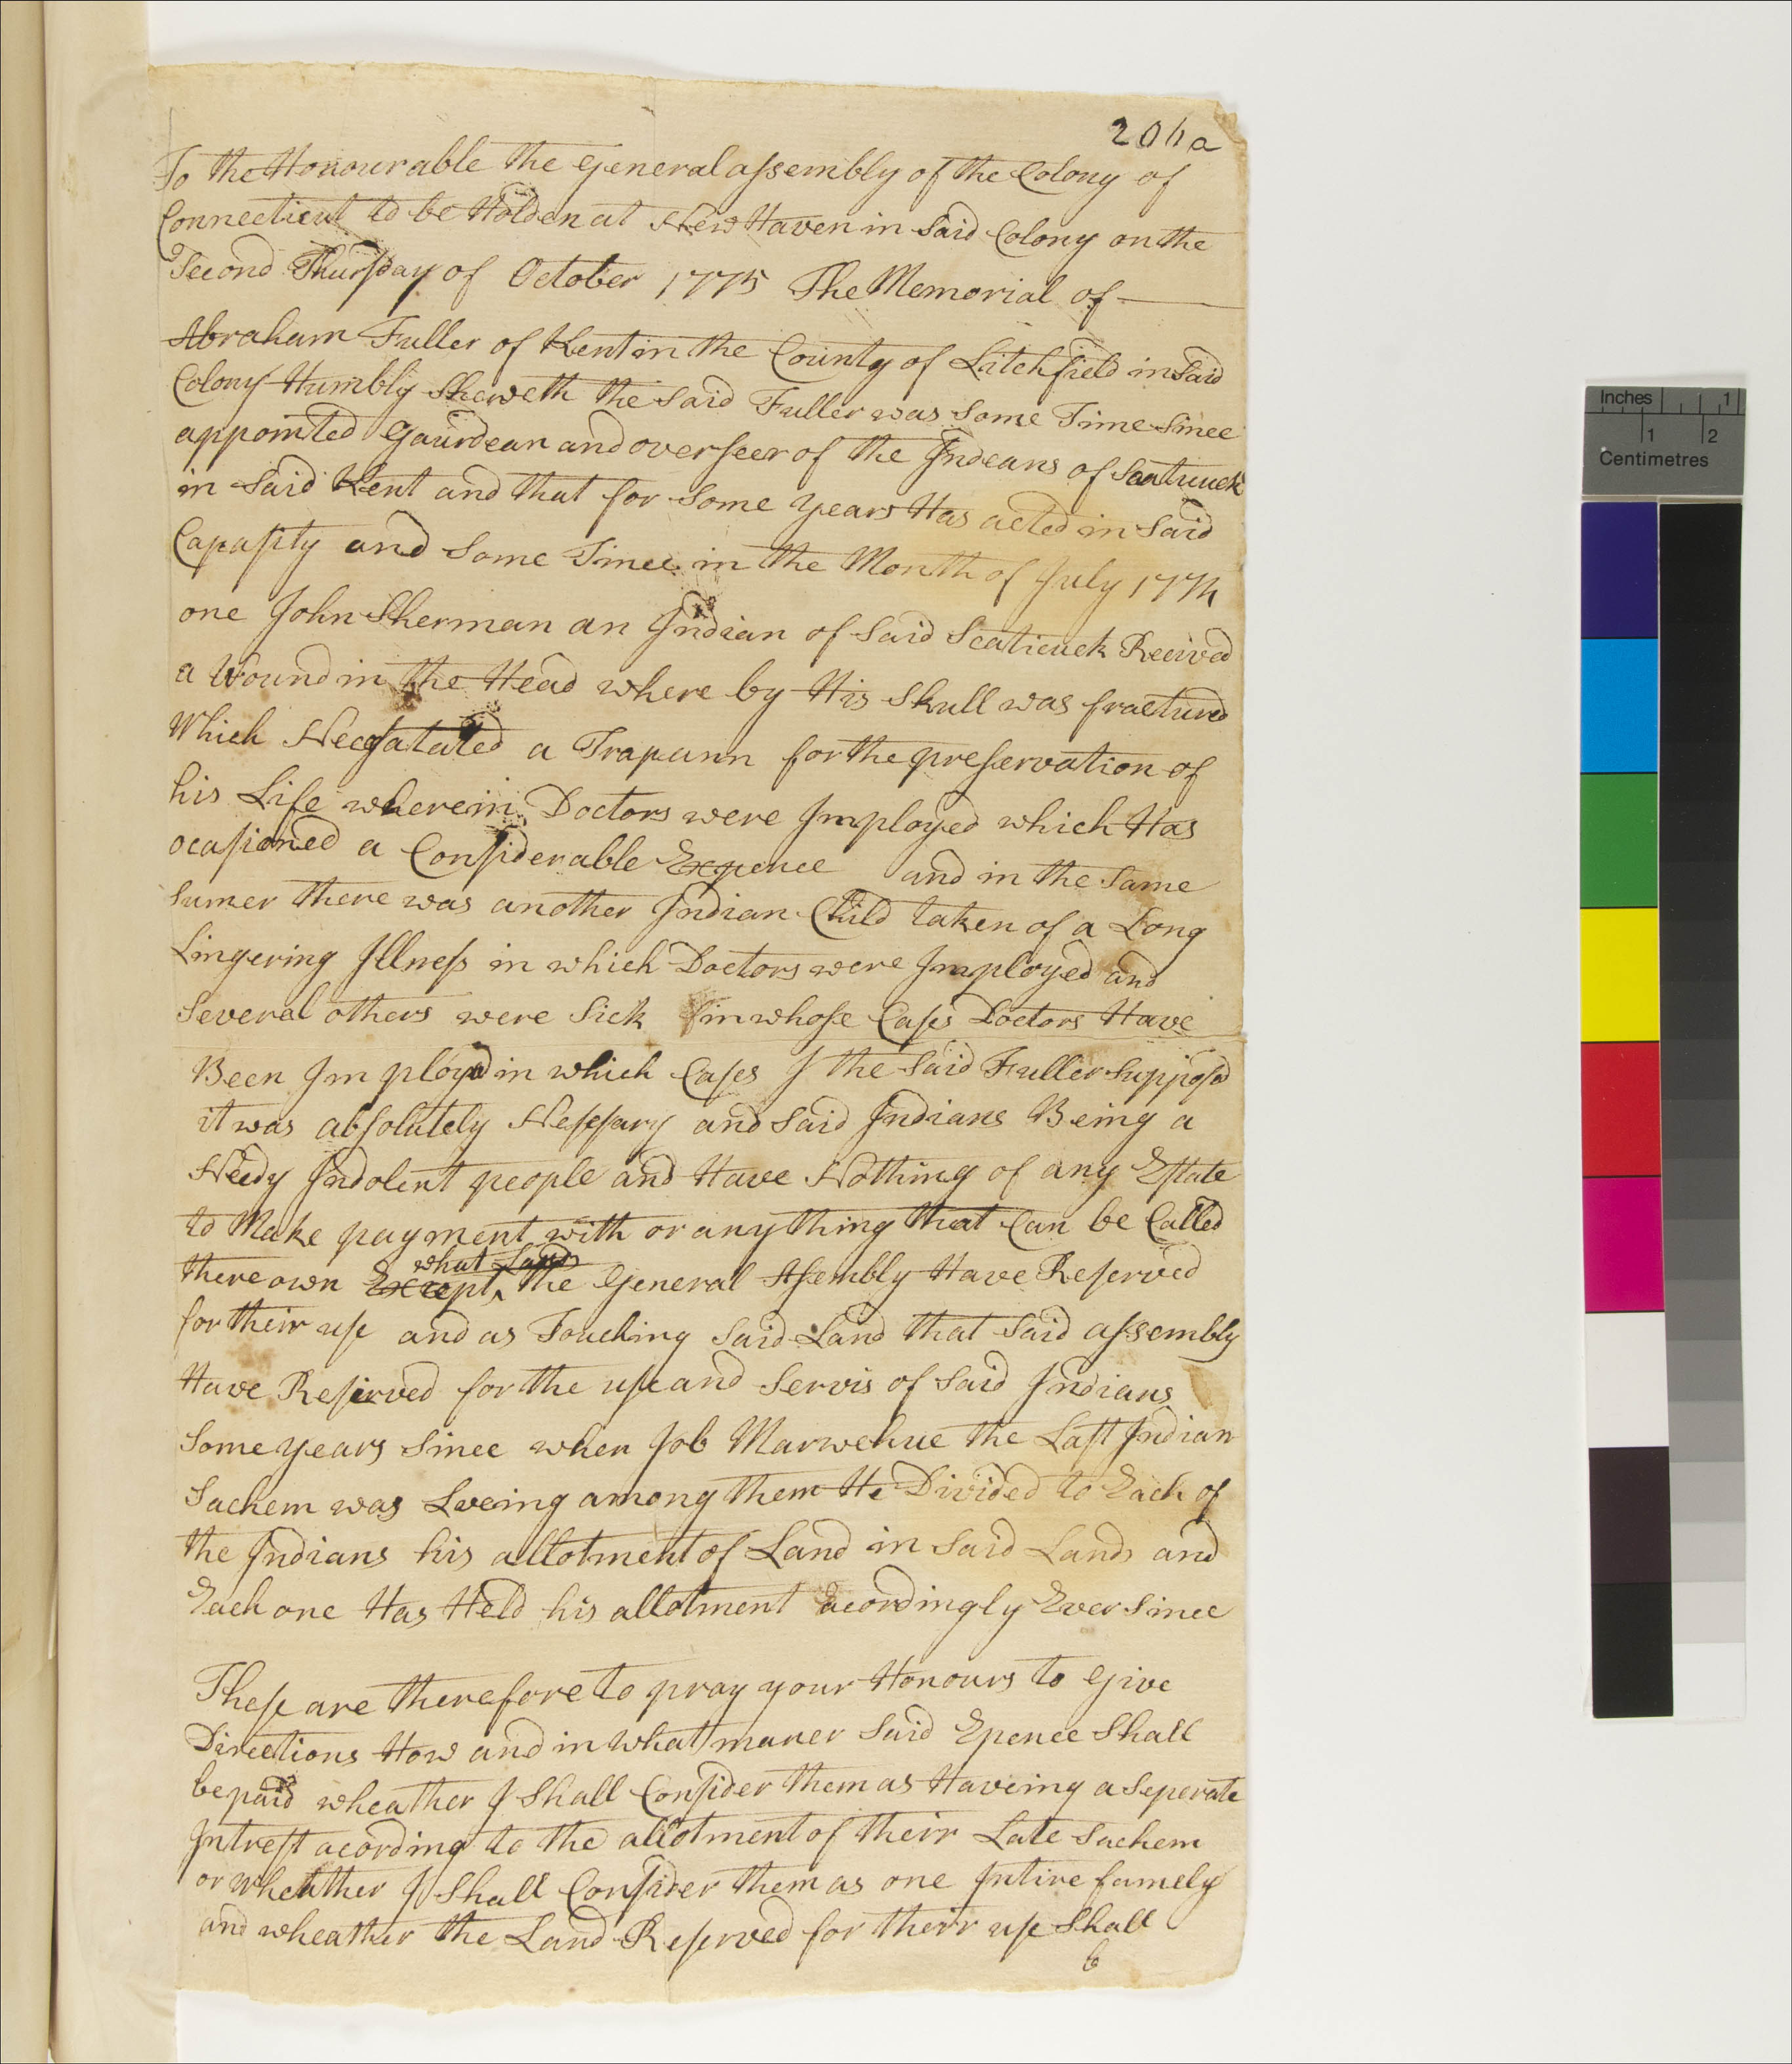 204a
To the Honourable the General assembly of the Colony of
Connecticut to be Holden at New Haven in Said Colony on the
Second Thursday of October 1775 The Memorial of
Abraham Fuller of Kent in the County of Litchfield in Said
Colony Humbly Sheweth the Said Fuller was Some Time Since
appointed Gaurdean and overseer of the Indeans of Scaticuck
in Said Kent and that for Some years Has acted in Said
Capasity and Some Time in the Month of July 1774
one John Sherman an Indian of Said Scaticuck Recived
a Wound in the Head where by His Skull was fractured
Which Necessatated a Trapann for the preservation of
his Life wherein Doctors were Imployed which Has
ocasioned a Considerable Expence and in the Same
Sumer there was another Indian Child taken of a Long
Lingering Illness in which Doctors were Imployed and
Several others were Sick in whose Cases Doctors Have
Been Imployd in which Cases I the Said Fuller Supposd
it was absolutely Nessary and Said Indians Being a
Needy Indolent people and Have Nothing of any Estate
to Make payment with or any thing that Can be Called
there own Except what Land the General Asembly Have Reserved
for their use and as Touching Said Land that Said assembly
Have Reserved for the use and Servis of Said Indians
Some years Since when Job Marwehue the Last Indian
Sachem was Liveing among them He Divided to Each of
the Indians his allotment of Land in Said Lands and
Each one Has Held his allotment acordingly Ever Since
These are therefore to pray your Honours to Give
Directions How and in What maner Said Epence Shall
be paid wheather I Shall Consider them as Haveing a Seperate
Intrest acording to the allotment of their Late Sachem
or wheather I Shall Consider them as one Intire famely
and wheather the Land Reserved for their use Shall
b
Inches 1
1 2
Centimetres